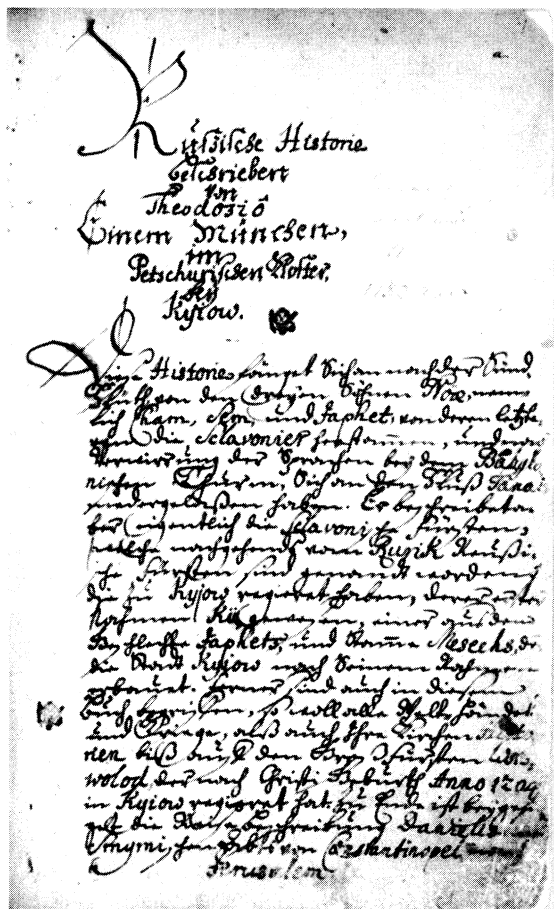 Rußische Historie
beschrieben
von
Theodosiô
Einem München,
im
Petschurischen Kloster,
in
Kyiow.
Diese Historie fänget Sich an nach der Sünd
fluth von den dreyen Söhnen Noæ, nem
lich Cham, Sem, und Japhet, von deren letzte
die Sclavonier herstammen, und nach
Verwirrung der Sprachen bey dem Baby
nischen Thurm, Sich an den Fluß Tanai
niedergelaßen haben. Er beschreibet
eigentlich die Sclavonische Fürsten,
welche nachgehends vom Rurik Reußi
sche Fürsten sind genandt worden,
die zu Kyiow regieret haben, deren erster
Nahmens Kii gewesen, einer aus dem
Geschlechte Japhets, und Stamme Mesechs, der
die Stadt Kyiow nach Seinem Nahmen
erbauet. Ferner sind auch in diesem
Buch begriffen, so woll alle Welt händel
und Kriege, alß auch Ihre Kirchen
rien biß auf den Groß Fürsten
wolod, der nach Christi Geburth Anno
in Kyiow regieret hat. zu Ende ist beygefü
get die Reise beschreibung Danielis
von Constantinopel
Jerusalem